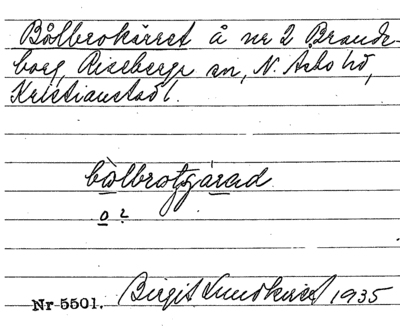 Bålbrokärret å nr 2 Brande-
borg, Riseberga sn, N. Åsbo hd,
Kristianstad l.
bölbrotgárad
o ?
Nr 5501. Birgit Lundkvist 1935